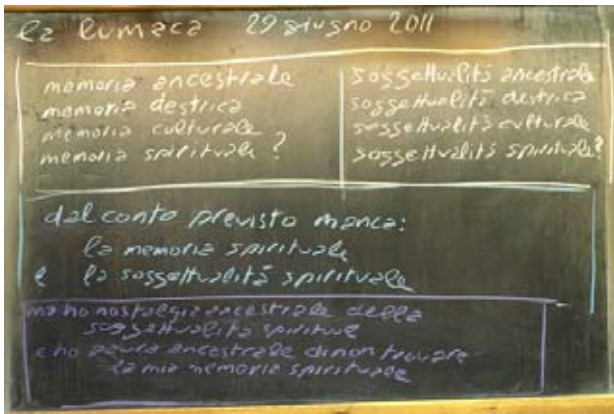 la lumaca 29 giugno 2011
memoria ancestrale
memoria destrica
memoria culturale
memoria spirituale ?
soggettualità ancestrale
soggettualità destrica
soggettualità culturale
soggettualità spirituale?
dal conto previsto manca:
la memoria spirituale
e la soggettualità spirituale
ma ho nostalgia ancestrale della
soggettualità spiritual
e ho paura ancestrale di non trovare
la mia memoria spirituale